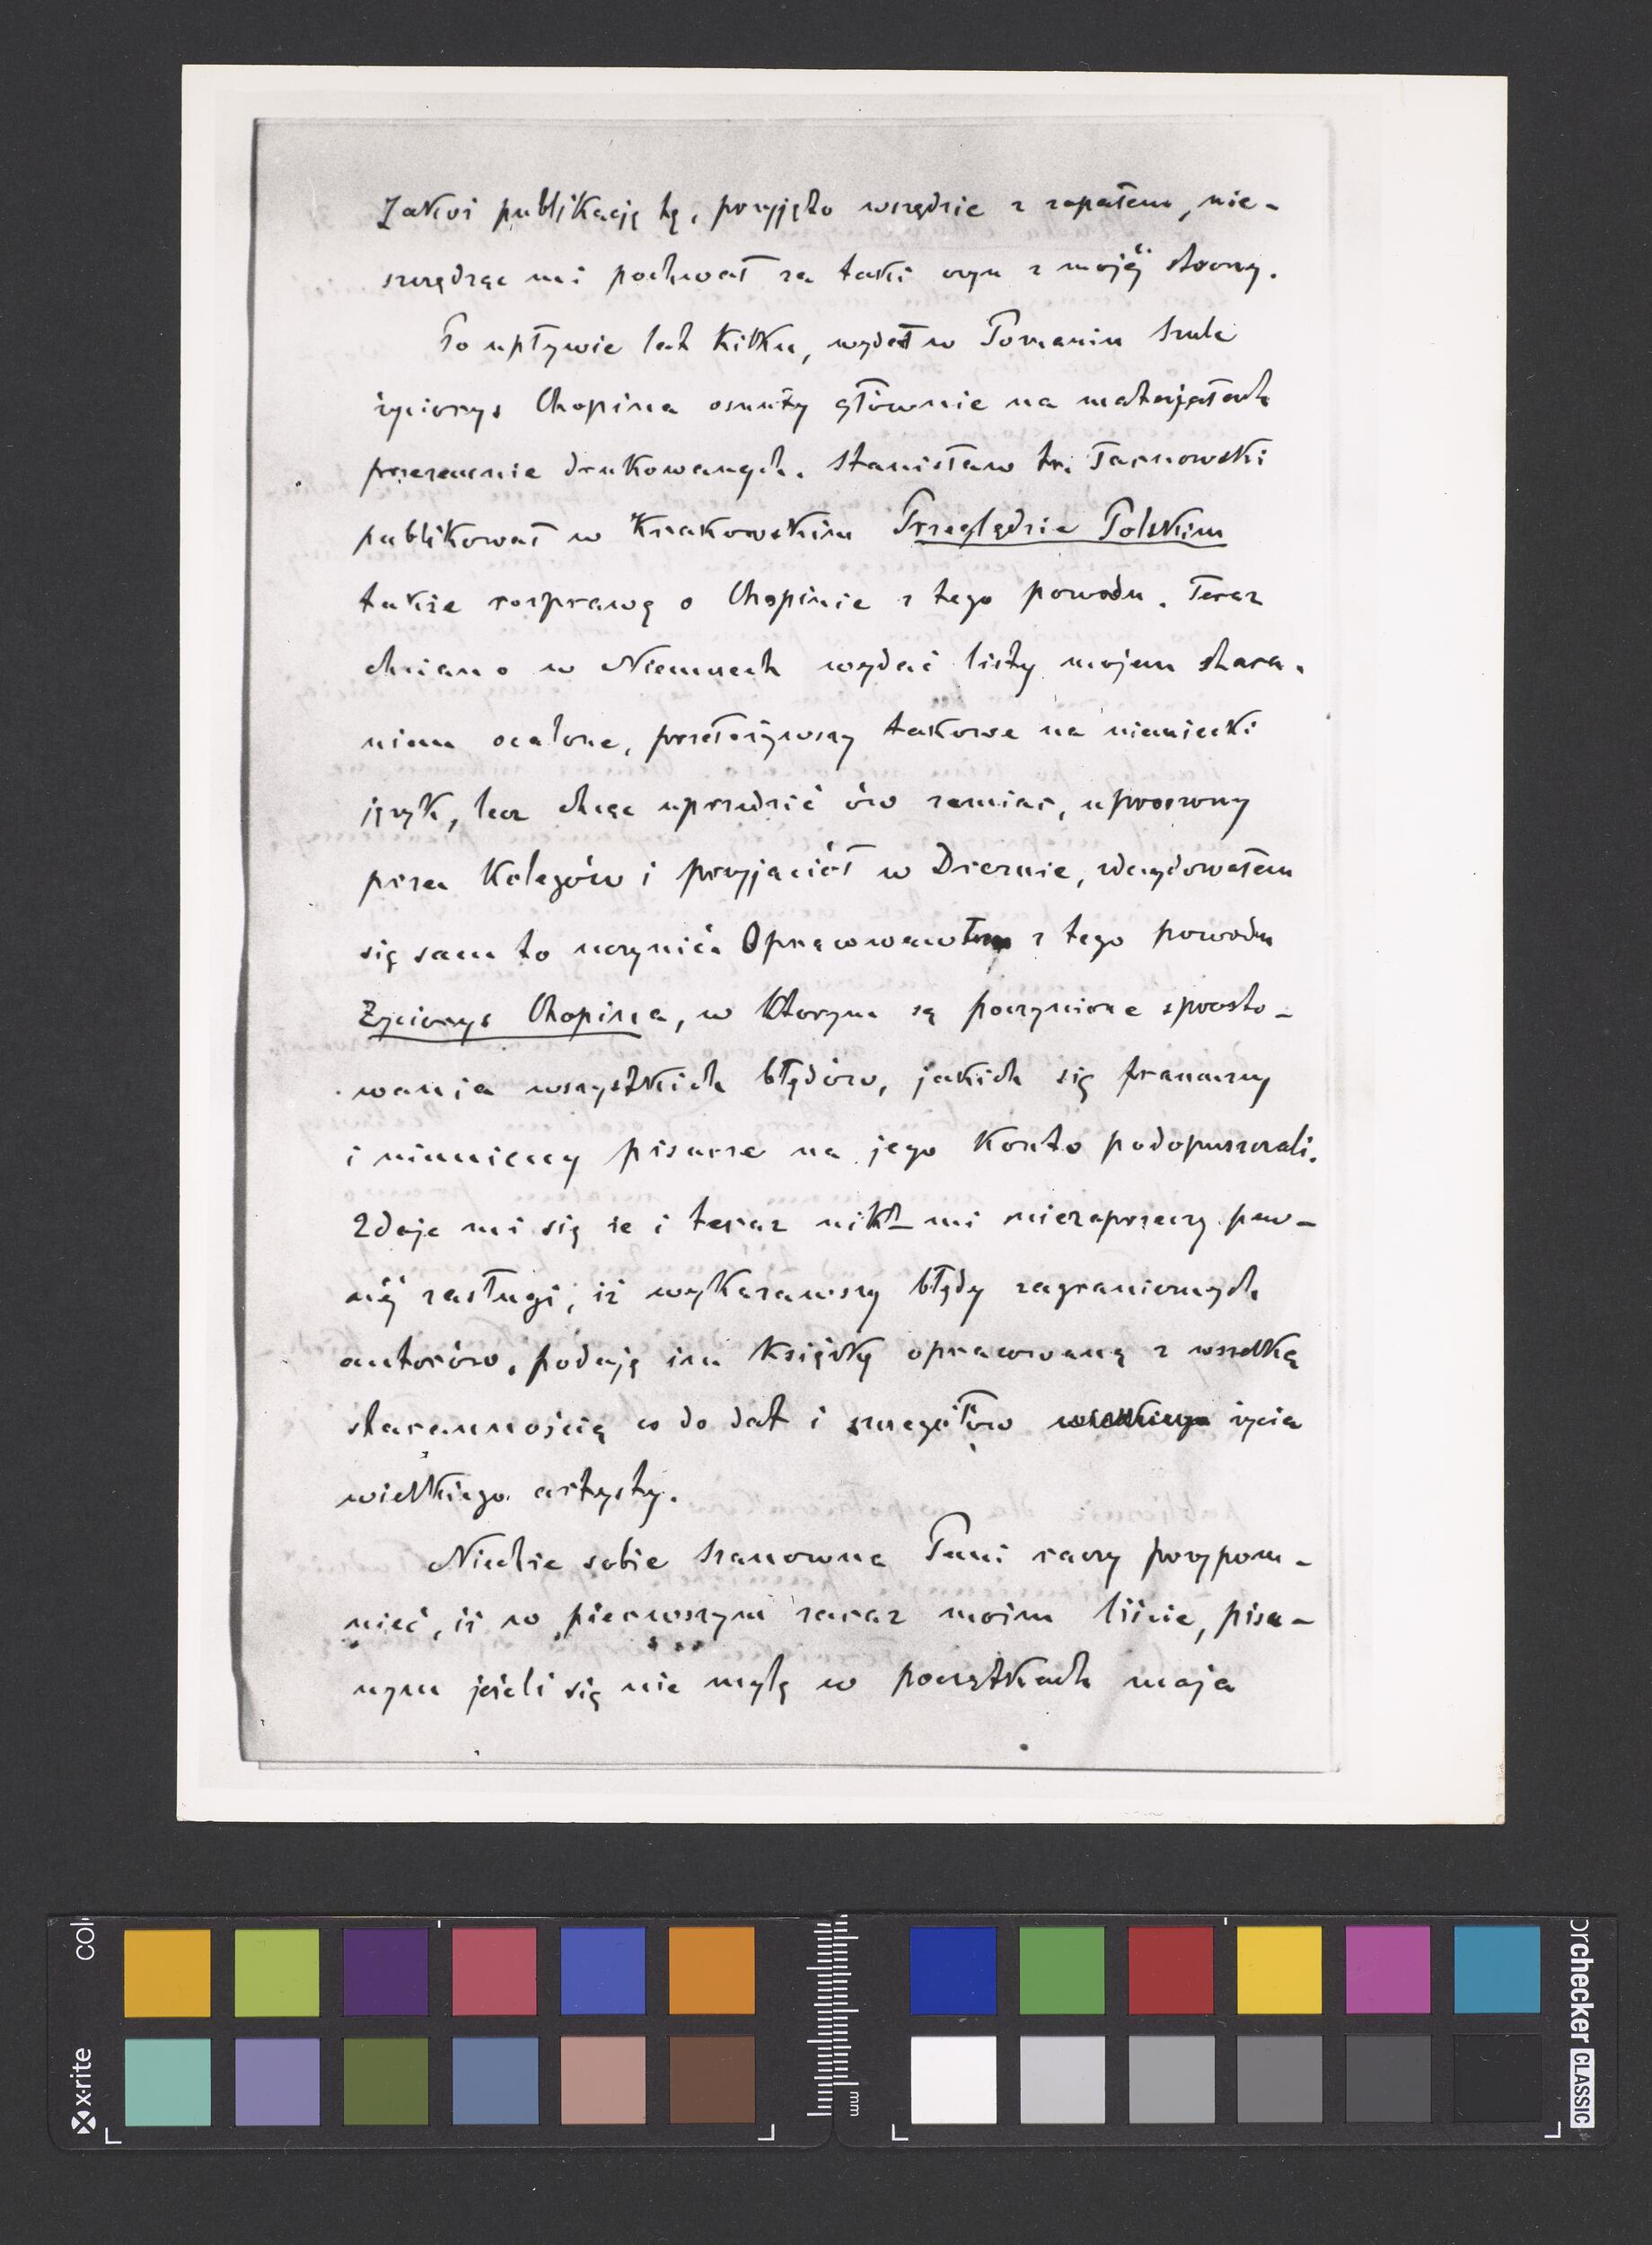 Jakoż publikację tę, przyjęto wszędzie z zapałem, nie-
szczędząc mi pochwał za taki czyn z mojéj strony.
Po upływie lat kilku, wydał w Poznaniu Szulc
życiorys Chopina osnuty głównie na materjałach
przezemnie drukowanych. Stanisław hr. Tarnowski
publikował w Krakowskim Przeglądzie Polskim
także rozprawę o Chopinie z tego powodu. Teraz
chciano w Niemczech wydać listy mojem stara-
niem ocalone, przełożywszy takowe na niemiecki
język, lecz chcąc uprzedzić ów zamiar, uproszony
przez kolegów i przyjaciół w Dreznie, zdecydowałem
się sam to uczynić. Opracowawszy z tego powodu
Życiorys Chopina, w którym są poczynione sprosto-
wania wszystkich błędów, jakich się francuzcy
i niemieccy pisarze na jego konto podopuszczali.
Zdaje mi się że i teraz nikt mi niezaprzeczy pew-
néj zasługi, iż wykazawszy błędy zagranicznych
autorów, podaję im książkę opracowaną z wszelką
starannością co do dat i szczegółów życia
wielkiego artysty.
Niechże sobie Szanowna Pani raczy przypom-
nieć, iż w pierwszym zaraz moim liście, pisa-
nym jeżeli się nie mylę w początkach maja